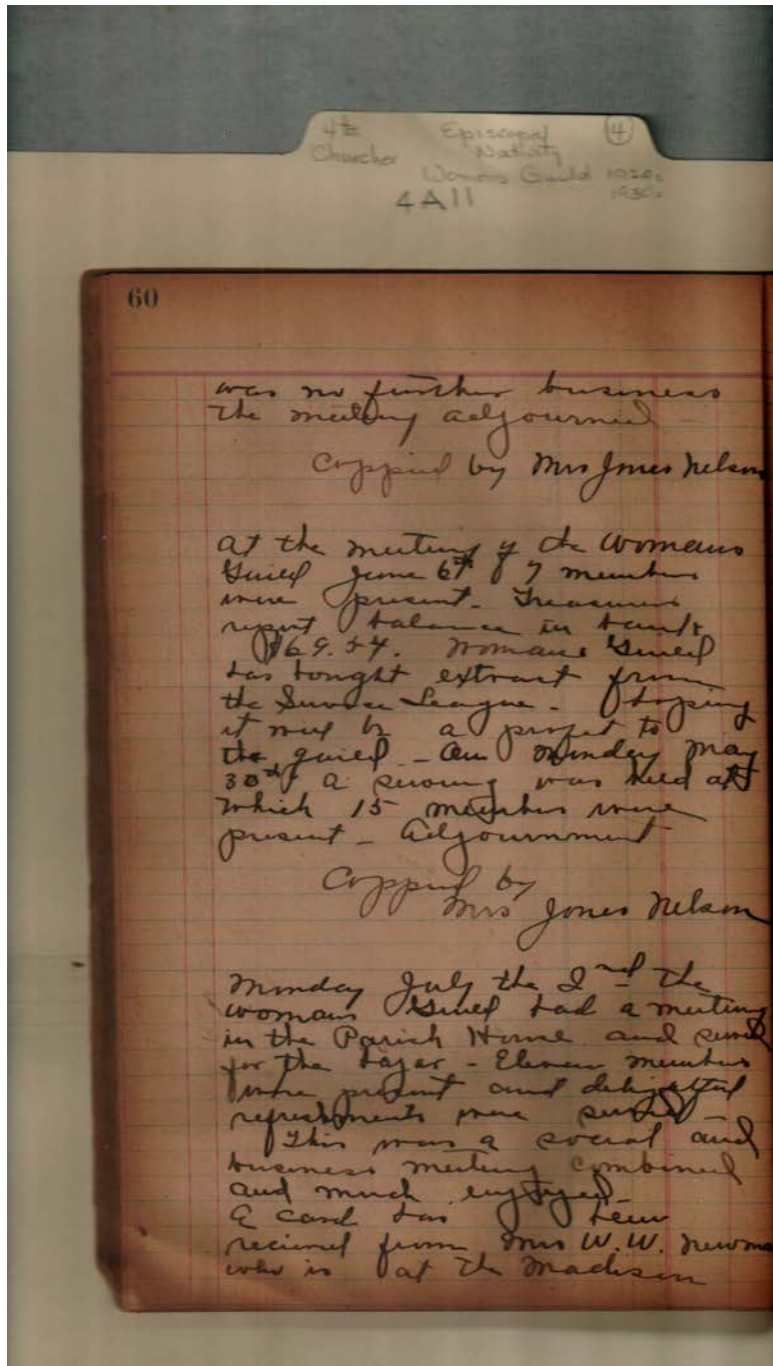 4th Episcopal 4
Churches Nativity
Womens Guild 1920s
4A11 1930s
60
was no further business
the meeting adjourned
Coppied by Mrs Jones Nelson
At the meeting of the Womans
Guild June 6th 7 members
were present. Treasurers
report balance in bank
Womans Guild
has bought extract from
the Service League. Hoping
it will be a profit to
the guild - On Monday May
30th a sewing was held at
which 15 members were
present - Adjournment
Coppied by
Mrs Jones Nelson
Monday July the 2nd the
womans Guild had a meeting
in the Parish House and sewed
for the bazar - Eleven members
were present and delightful
refreshments were served -
This was a social and
business meeting combined
and much enjoyed -
A card has been
recieved from Mrs W.W. Newma
who is at the Madison